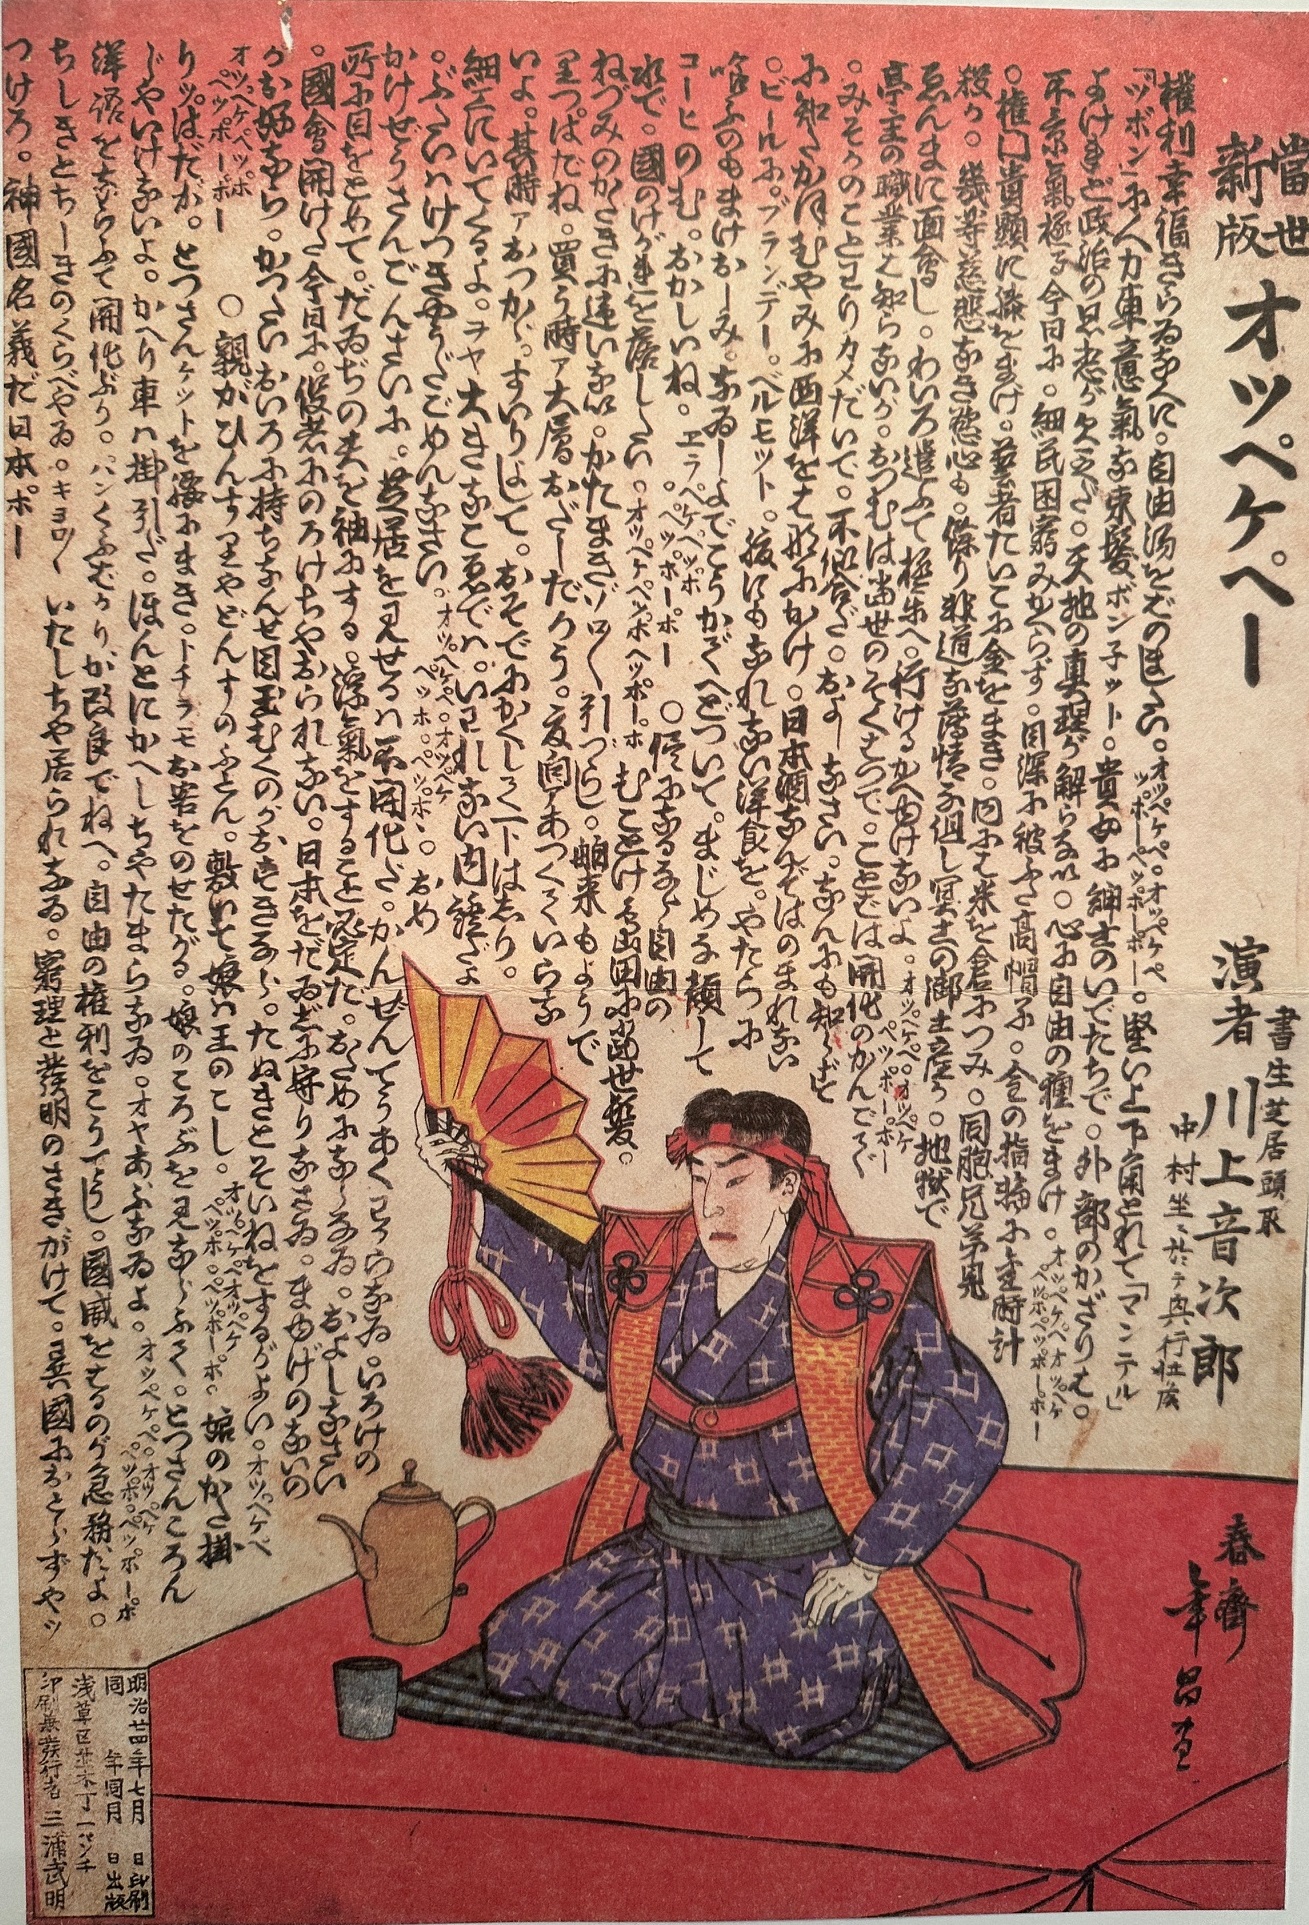 當世
新版
オッペケペー
書生芝居頭取
演者 川上音次郎
中村坐ニ於テ興行
權利幸福きらゐな人に。自由湯をばのましたい。オツペケペ。オツペケペツポーペツポーポー。堅い上下角とれて「マンテル」
「ヅボン」に人力車意氣な束髪ボン子ット。貴女に紳士のいでたちで。外部のかざりは。
よけれど政治の思想が欠乏だ。天地の真理が解らない。心に自由の種をまけ。オツペケペオツペケペツポペツポーポー
不景氣極る今日に。細民困窮みかへらず。目深に被ふた高帽子。金の指輪に金時計
。権門貴顕に膝をまげ。藝者たいこに金をまき。内には米を倉につみ。同胞兄弟見
殺か。幾等慈悲なき慾心も。餘り非道な薄情な但し冥土の御土産か。地獄で
ゑんまに面會し。わいろ遣ふて極楽へ。行けるかへゆけないよ。オツペケペ。オツペケペツポーポーポー
亭主の職業は知らないが。おつむは當世のそくはつで。ことばは開化のかんごで
。みそかのことわりカメだいて。不似合だ。およしなさい。なんにも知らずに
に知たかほむやみに西洋をはなにかけ。日本酒なんぞはのまれない
。ビールに。ブランデー。ベルモット。腹にもなれない洋食を。やたらに
喰ふのもまけおしみ。ないしよでこうかでへどついて。まじめな顔して
コーヒのむ。おかしいね。エラペケペツポ。ペツポーポー ○侭になるなら自由の
水で。國のけがれを落したい。オツペケペンポヘツポーポ むこはけ馬出田に當世髪。
ねづみのかきに違いない。かたまきゾロ〱引づらし。舶来もようで
りつぱだね。買う時ァ大層おだしだろう。夏向アあつくていらな
いよ。其時ァおつかぶ。すいりよして。おそでにかくして下はしり。
細工にいてくるよ。ヲヤ大きなこゑでハ。いはれない内證だよ
。ぶたいハけつきやうだごめんなさい。オツペケペ。オツペケペツポ。ペツポポ。おめ
かけぜうさんごんさいに。芝居を見せるハ不開化だ。かんぜんてうあくわからない。いろけの
所に目をとめて。だいぢの夫を袖にする。浮氣をすること必定だ。おためにならない。およしなさい
。國會開けた今日に。役者にのろけちやおられない。日本をだいじに守りなさい。まゆげのないの
がお好なら。かつたいおいろに持ちなんせ目玉むくのがおすきなら。たぬきとそいねをするがよい。オツペケペ
オツペケペツポ ペツポーポー ○親がひんすりやどんすのふとん。敷いて娘ハ玉のこし。オツペケペ。オツペケペツポ。ペツポーポ。娘のかた掛
りつぱだが。とつさんケットを腰にまき。トチラモお客をのせたがる。娘のころぶを見ならふて。とつさんころん
じやいけないよ。かへり車ハ掛引だ。ほんとにかへしちやたまらない。オヤあぶないよ。オツペケペ。オツペケペツポ。ペツポーポ
洋語をならふて開化ぶり。パンくふばかりが改良でねへ。自由の権利をこうてうし。國威をはるのが急務だよ。
ちしきとちしきのくらべやゐ。キヨロ〱いたしちや居られない。窮理と發明のさきがけて。異國におとらずやッ
つけろ。神國名義だ日本ポー
春齊
年昌画
明治廿四年七月 日印刷
同 年同月 日出版
浅草区並木丁一バンチ
印刷兼發行者 三浦武明